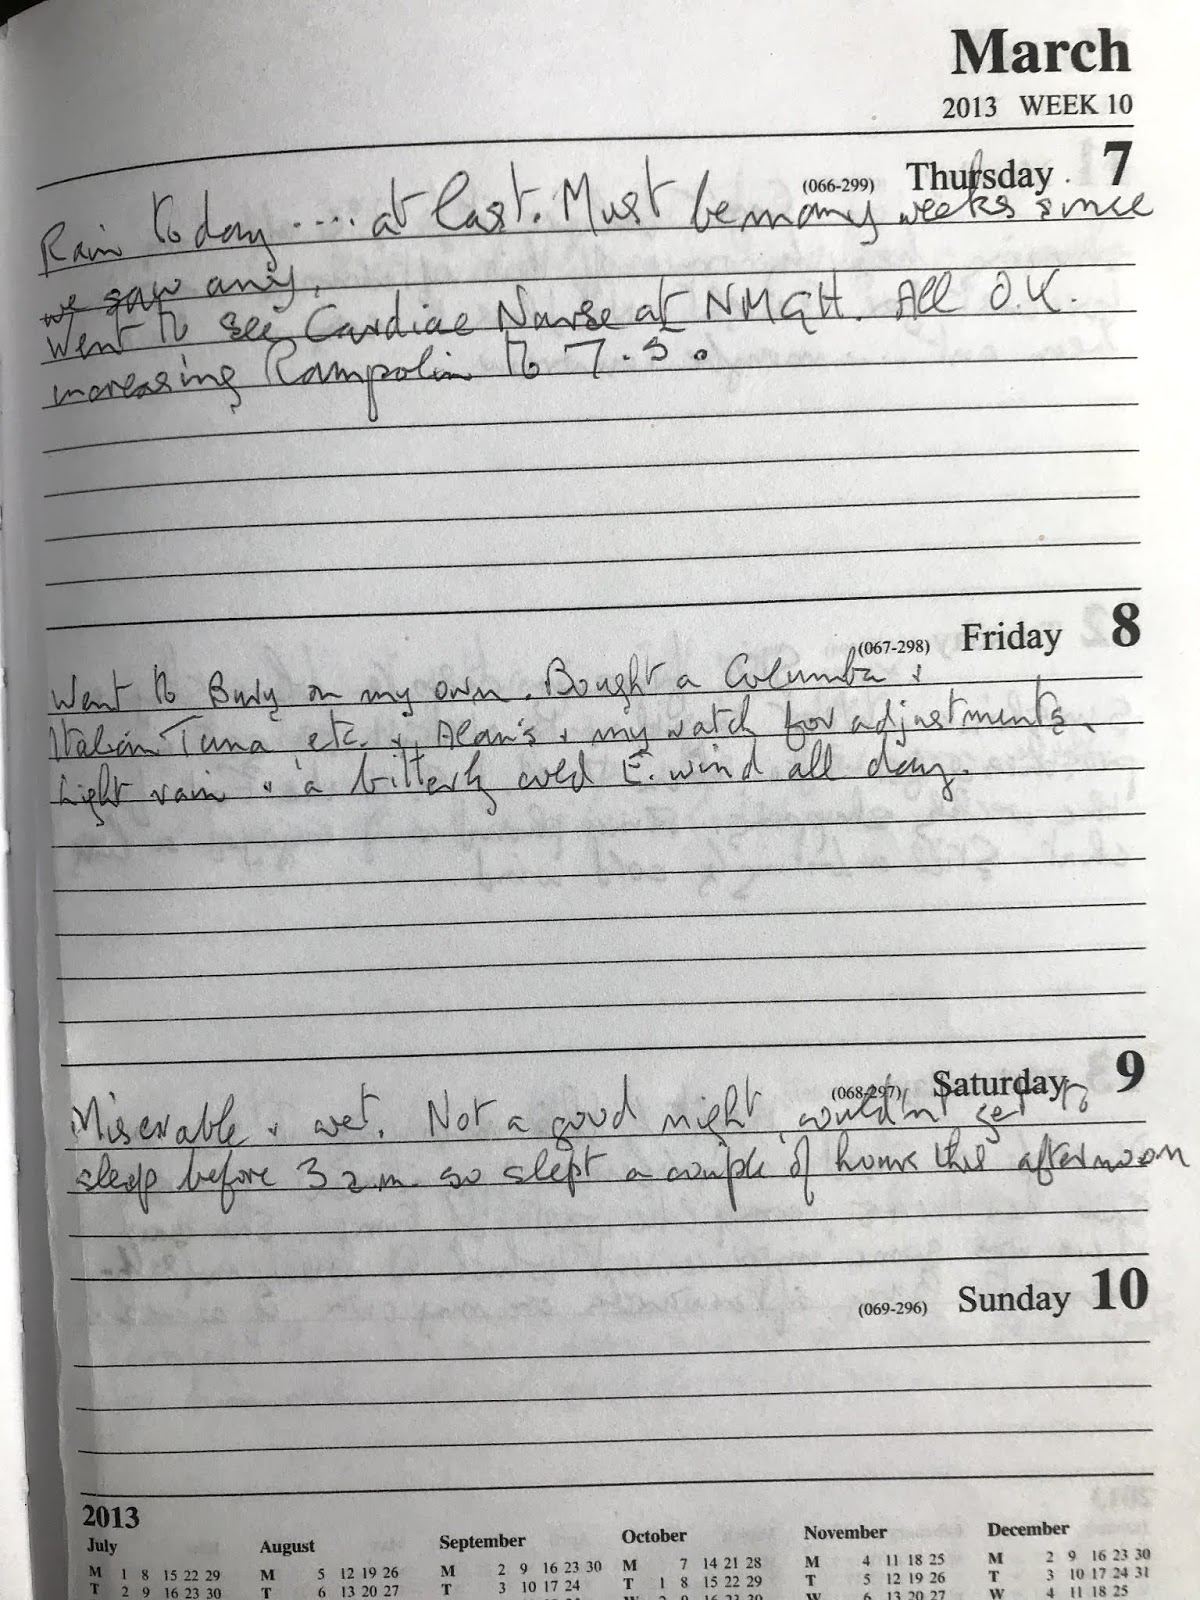 March
2013 WEEK 10
(066-299) Thursday 7
Rain today .... at last. Must be many weeks since
we saw any.
Went to see Cardiac Nurse at NMGH. All O.K.
increasing Rampolin to 7.5.
(067-298) Friday 8
Went to Bury on my own. Bought a Columba &
Italian Tuna etc. & Alan's & my watch for adjustments.
Light rain & a bitterly cold E. wind all day.
(068-297) Saturday 9
Miserable & wet. Not a good night, couldn't get to
sleep before 3 a.m. so slept a couple of hours this afternoon
(069-296) Sunday 10
2013
July August September October November December
M 1 8 15 22 29 M 5 12 19 26 M 2 9 16 23 30 M 7 14 21 28 M 4 11 18 25 M 2 9 16 23 30
T 2 9 16 23 30 T 6 13 20 27 T 3 10 17 24 T 1 8 15 22 29 T 5 12 19 26 T 3 10 17 24 31
W 4 11 18 25